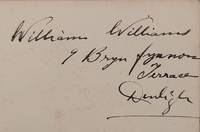 Williams Williams
9 Bryn fynnon
Terrace
Denbigh